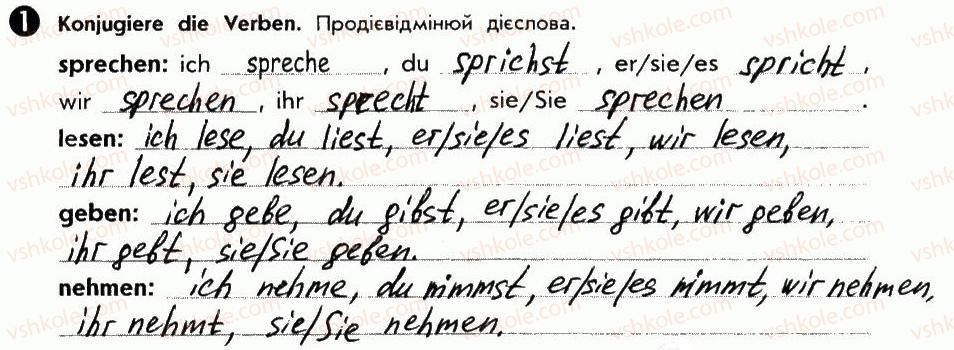 1 Konjugiere die Verben. Продієвідмінюй дієслова.
sprechen: ich spreche, du sprichst, er/sie/es spricht,
wir sprechen, ihr sprecht, sie/Sie sprechen.
lesen: ich lese, du liest, er/sie/es liest, wir lesen,
ihr lest, sie lesen.
geben: ich gebe, du gibst, er/sie/es gibt, wir geben,
ihr gebt, sie/Sie geben.
nehmen: ich nehme, du nimmst, er/sie/es nimmt, wir nehmen,
ihr nehmt, sie/Sie nehmen.